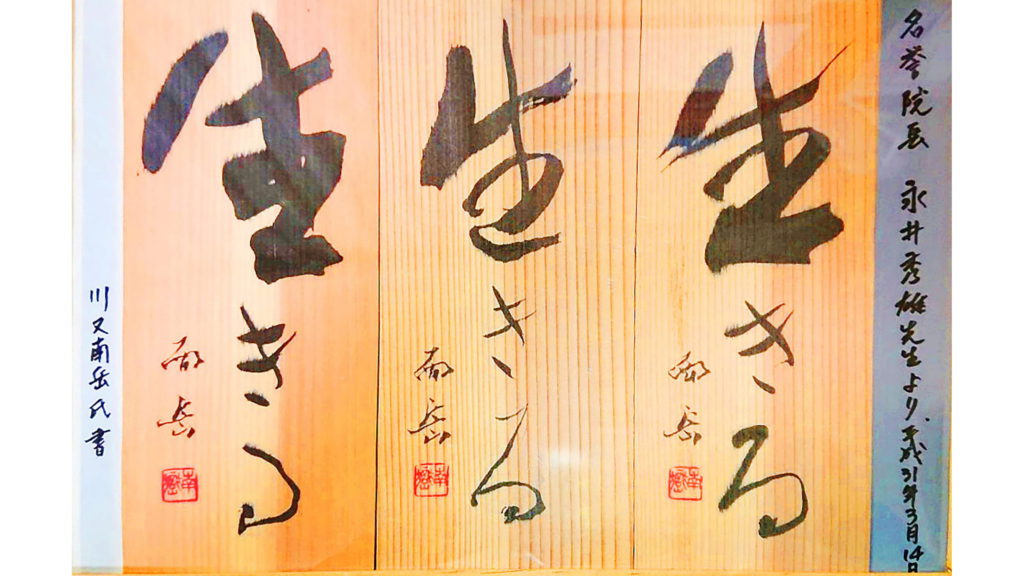 名誉院長 永井秀雄先生より、平成31年3月14日
生きる
南岳
生きる
南岳
生きる
南岳
川又南岳氏書